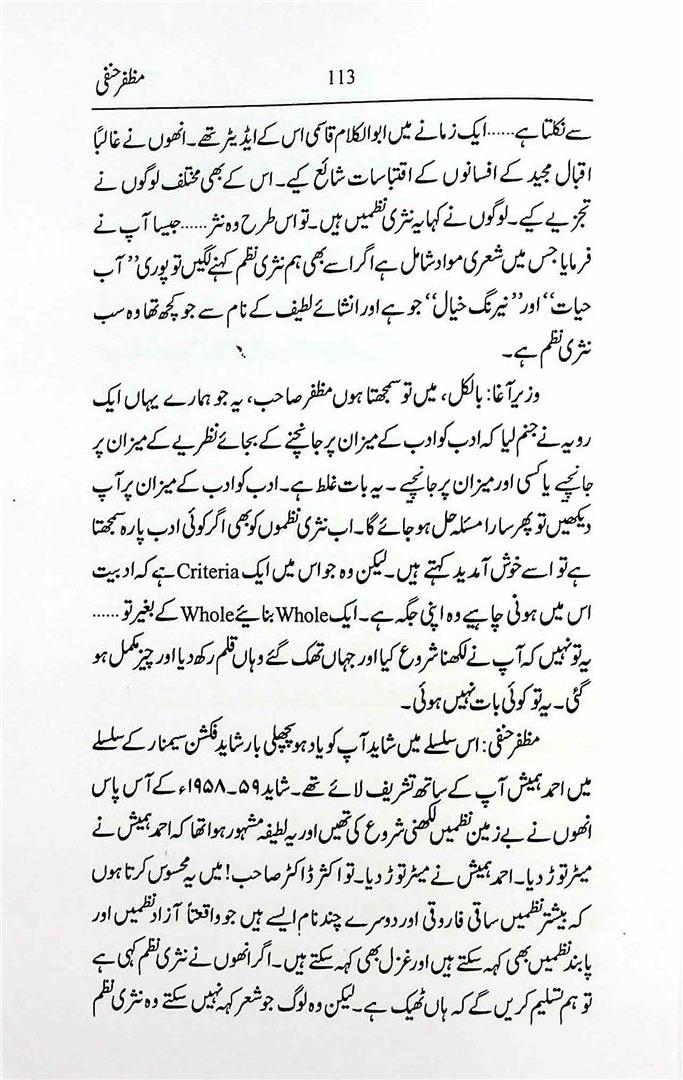 مظفر حنفی 113
سے نکلتا ہے...... ایک زمانے میں ابوالکلام قاسمی اس کے ایڈیٹر تھے۔ انھوں نے غالباً
اقبال مجید کے افسانوں کے اقتباسات شائع کیے۔ اس کے بھی مختلف لوگوں نے
تجزیے کیے۔ لوگوں نے کہا یہ نثری نظمیں ہیں۔ تو اس طرح وہ نثر...... جیسا آپ نے
فرمایا جس میں شعری مواد شامل ہے اگر اسے بھی ہم نثری نظم کہنے لگیں تو پوری ’’آب
حیات‘‘ اور ’’نیرنگ خیال‘‘ جو ہے اور انشائے لطیف کے نام سے جو کچھ تھا وہ سب
نثری نظم ہے۔
وزیر آغا: بالکل، میں تو سمجھتا ہوں مظفر صاحب، یہ جو ہمارے یہاں ایک
رویہ نے جنم لیا کہ ادب کو ادب کے میزان پر جانچنے کے بجائے نظریے کے میزان پر
جانچیے یا کسی اور میزان پر جانچیے۔ یہ بات غلط ہے۔ ادب کو ادب کے میزان پر آپ
دیکھیں تو پھر سارا مسئلہ حل ہو جائے گا۔ اب نثری نظموں کو بھی اگر کوئی ادب پارہ سمجھتا
ہے تو اسے خوش آمدید کہتے ہیں۔ لیکن وہ جو اس میں ایک Criteria ہے کہ ادبیت
اس میں ہونی چاہیے وہ اپنی جگہ ہے۔ ایک Whole بنائیے Whole کے بغیر تو......
یہ تو نہیں کہ آپ نے لکھنا شروع کیا اور جہاں تھک گئے وہاں قلم رکھ دیا اور چیز مکمل ہو
گئی۔ یہ تو کوئی بات نہیں ہوئی۔
مظفر حنفی: اس سلسلے میں شاید آپ کو یاد ہو پچھلی بار شاید فکشن سیمنار کے سلسلے
میں احمد ہمیش آپ کے ساتھ تشریف لائے تھے۔ شاید ۵۹۔۱۹۵۸ء کے آس پاس
انھوں نے بے زمین نظمیں لکھنی شروع کی تھیں اور یہ لطیفہ مشہور ہوا تھا کہ احمد ہمیش نے
میٹر توڑ دیا۔ احمد ہمیش نے میٹر توڑ دیا۔ تو اکثر ڈاکٹر صاحب! میں یہ محسوس کرتا ہوں
کہ بیشتر نظمیں ساقی فاروقی اور دوسرے چند نام ایسے ہیں جو واقعتاً آزاد نظمیں اور
پابند نظمیں بھی کہہ سکتے ہیں اور غزل بھی کہہ سکتے ہیں۔ اگر انھوں نے نثری نظم کہی ہے
تو ہم تسلیم کریں گے کہ ہاں ٹھیک ہے۔ لیکن وہ لوگ جو شعر کہہ نہیں سکتے وہ نثری نظم